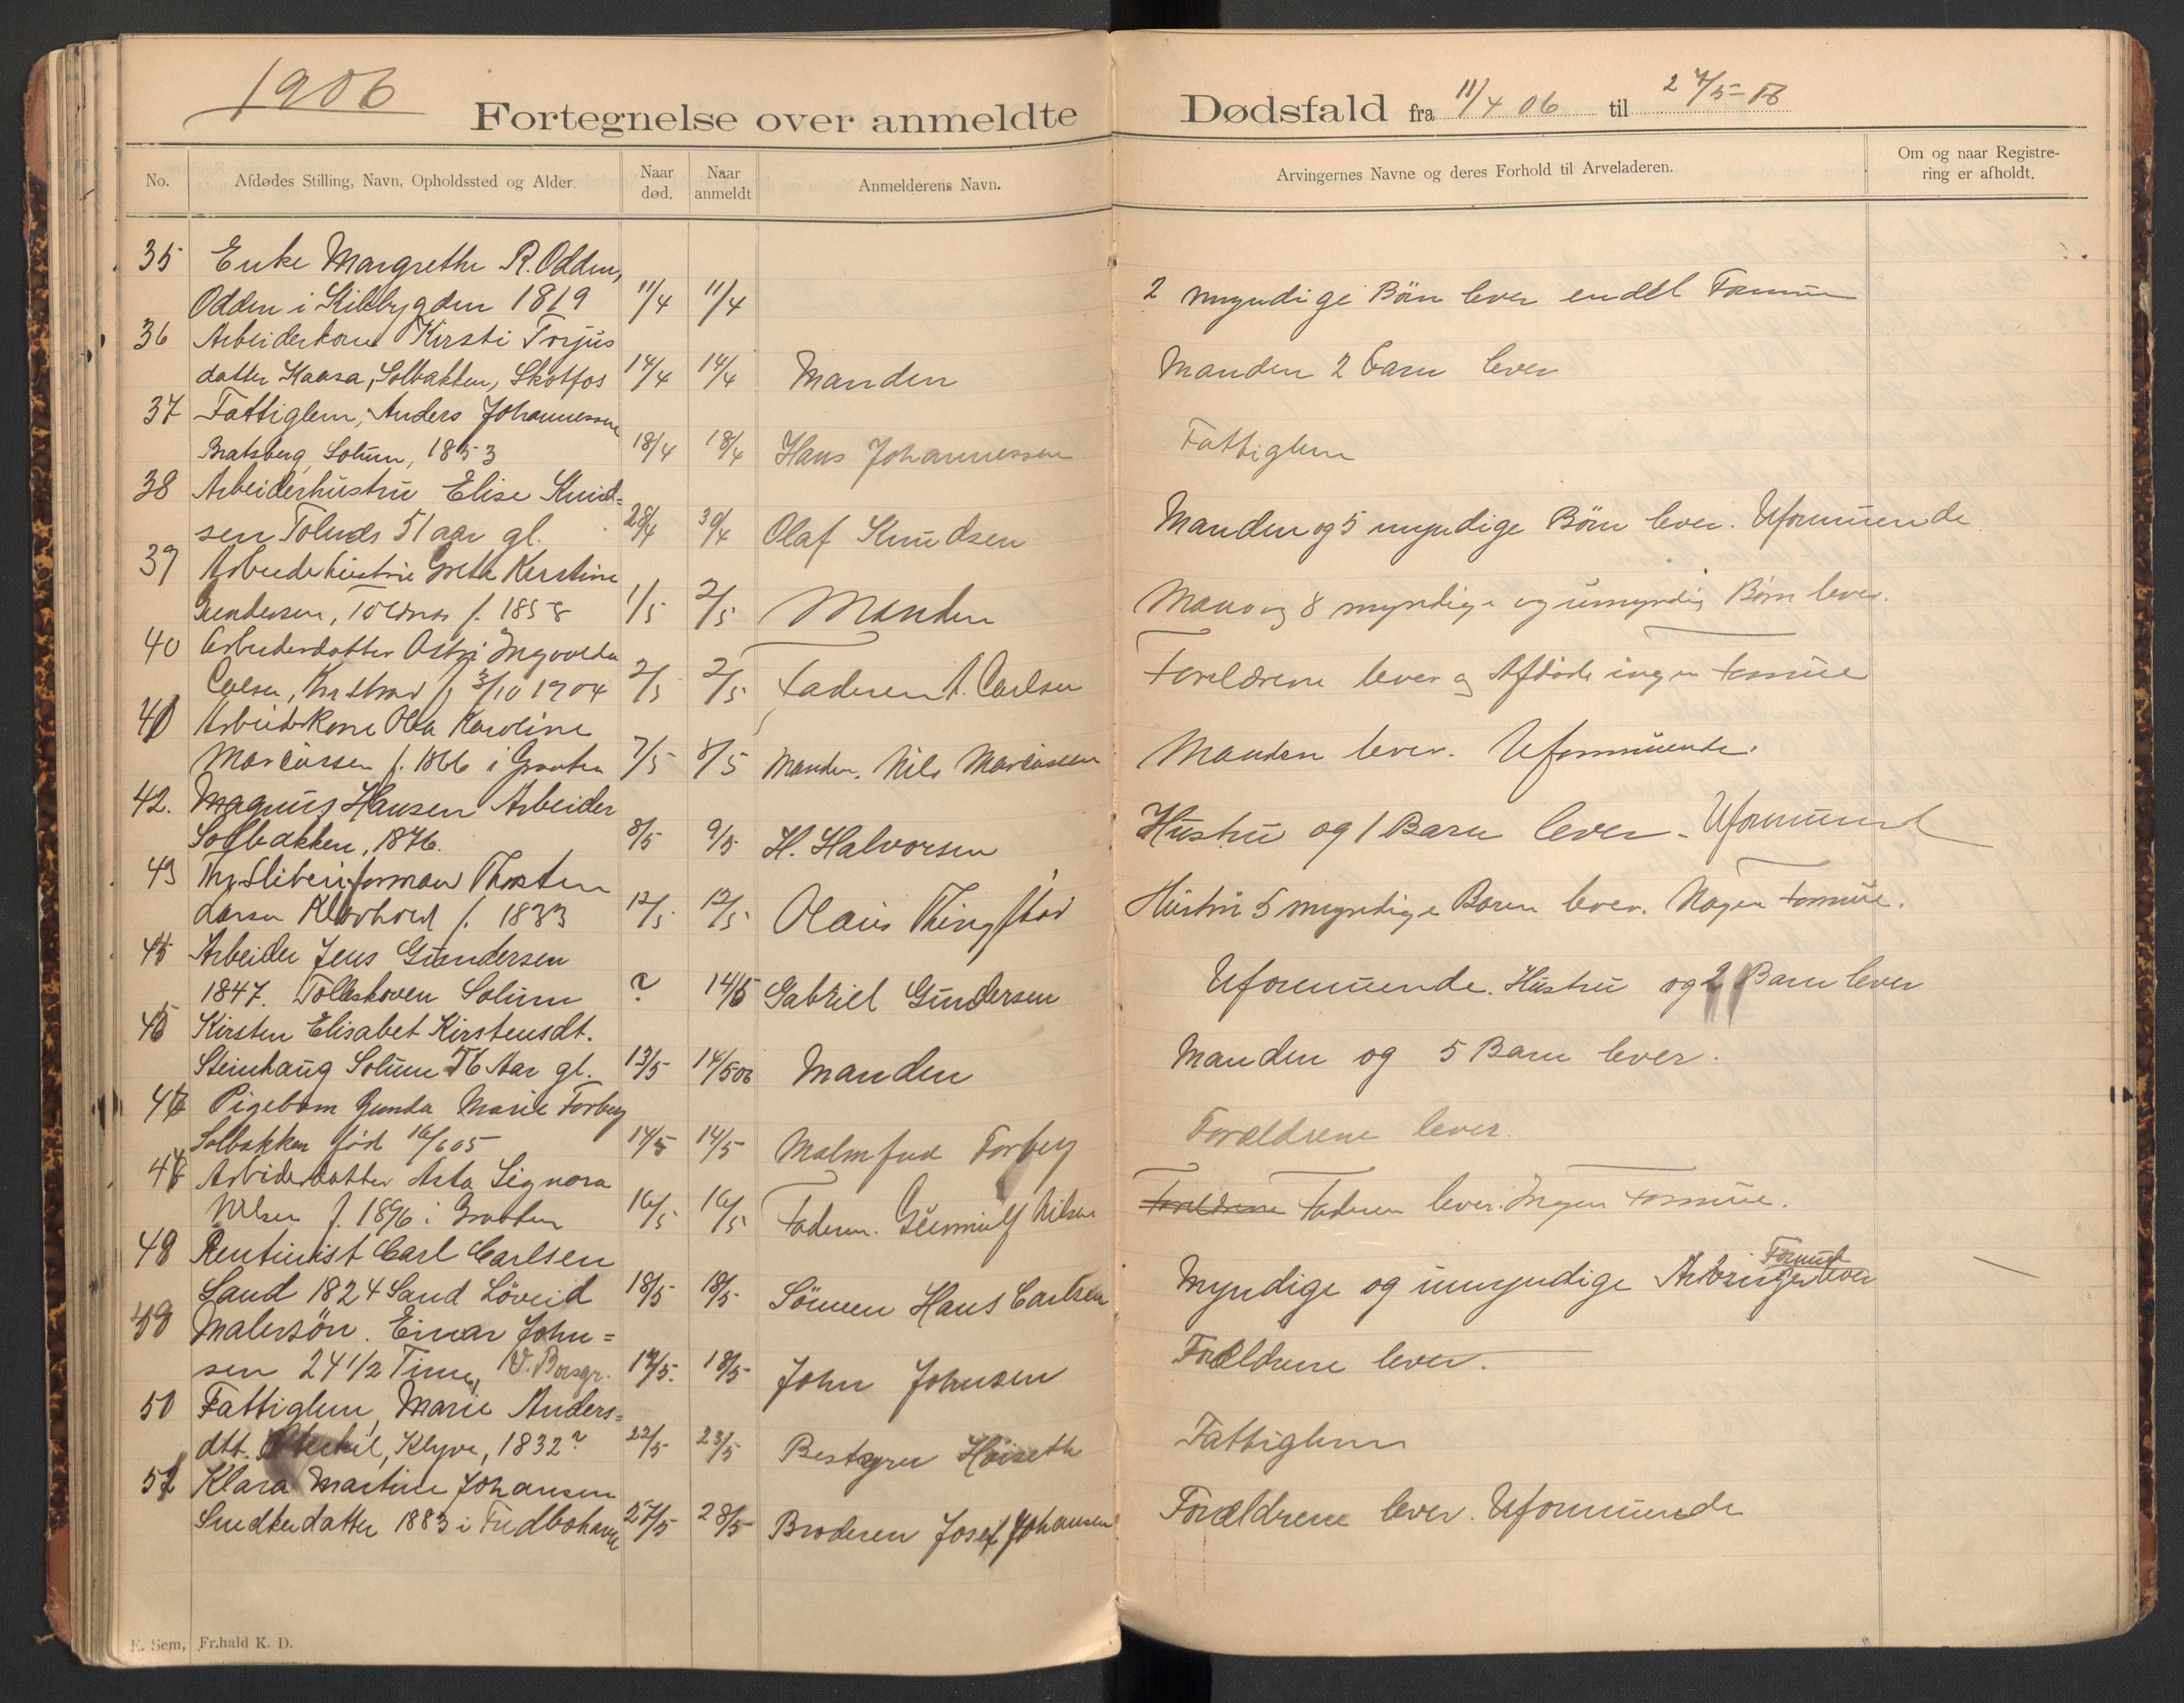 1906
Fortegnelse over anmeldte Dødsfald fra 11/4 06 til 27/5-06
No. Afdødes Stilling, Navn, Opholdssted og Alder. Naar død. Naar anmeldt Anmelderens Navn. Arvingernes Navne og deres Forhold til Arveladeren. Om og naar Registrering er afholdt.
35 Enke Margrethe R. Odden,
Odden i Kilebygden 1819 11/4 11/4 2 myndige Börn lever endel Formue
36 Arbeiderkone Kirsti Torjus
datter Kaasa, Solbakken, Skotfos 14/4 14/4 Manden Manden 2 barn lever
37 Fattiglem, Anders Johannessen
Bratsberg, Solum, 1853 18/4 18/4 Hans Johannessen Fattiglem
38 Arbeiderhustru Elise Knud=
sen Tolnes 51 aar gl. 28/4 30/4 Olaf Knudsen Manden og 5 myndige Börn lever. Uformuende
39 Arbeiderhustru Grete Kerstine
Gundersen, Tolnes f. 1858 1/5 2/5 Manden Mand og 8 myndige og umyndig Börn lever.
40 Arbeiderdatter Astri Ingvolda
f 3/10 1904 2/5 2/5 Faderen A. Carlsen Foreldrene lever og Afdöde ingen Formue
41 Arbeiderkone Olea Karoline
Marcussen f. 1866 i Graaten 7/5 8/5 Manden. Nils Marcussen Manden lever. Uformuende.
42. Magnus Hansen Arbeider
Solbakken, 1876. 8/5 9/5 H. Halvorsen Hustru og 1 Barn lever - Uformuend
43 Thv. Sliberiformand Thorsten
Larsen Klovholt f. 1833 12/5 12/5 Olaus Ringstad Hustru 5 myndige Barn lever. Nogen Formue.
44 Arbeider Jens Gundersen
1847. Tolleskoven Solum ? 14/5 Gabriel Gundersen Uformuende. Hustru og 2 Barn lever
45 Kirsten Elisabet Kirstensdt.
Steinhaug Solum 76 Aar gl. 13/5 14/5 06 Manden Manden og 5 Barn lever.
46 Pigebarn Gunda Marie Forberg
Solbakken född 16/6 05 14/5 14/5 Malmfrid Forberg Forældrene lever.
47 Arbeiderdatter Asta Signora
Nilsen f. 1896 i Graaten 16/5 16/5 Faderen. Gunnulf Nilsen Foreldrene Faderen lever. Ingen Formue.
48 Rentinist Carl Carlsen
Sand 1824 Sand Löveid 18/5 18/5 Sönnen Hans Carlsen Myndige og umyndige Arvinger lever Formue
49 Malersön. Einar John=
sen 24 1/2 Time, V. Porsgr. 17/5. 18/5 John Johnsen Forældrene lever.
50 Fattiglem, Marie Anders=
dtt. Klyve, 1832? 22/5 23/5 Bestyrer Höiseth Fattiglem
51 Klara Martine Johansen
Snedkerdatter 1883 i Fredbohavn 27/5 28/5 Broderen Josef Johansen Forældrene lever. Uformuende
E. Sem, Fr.hald K. D.